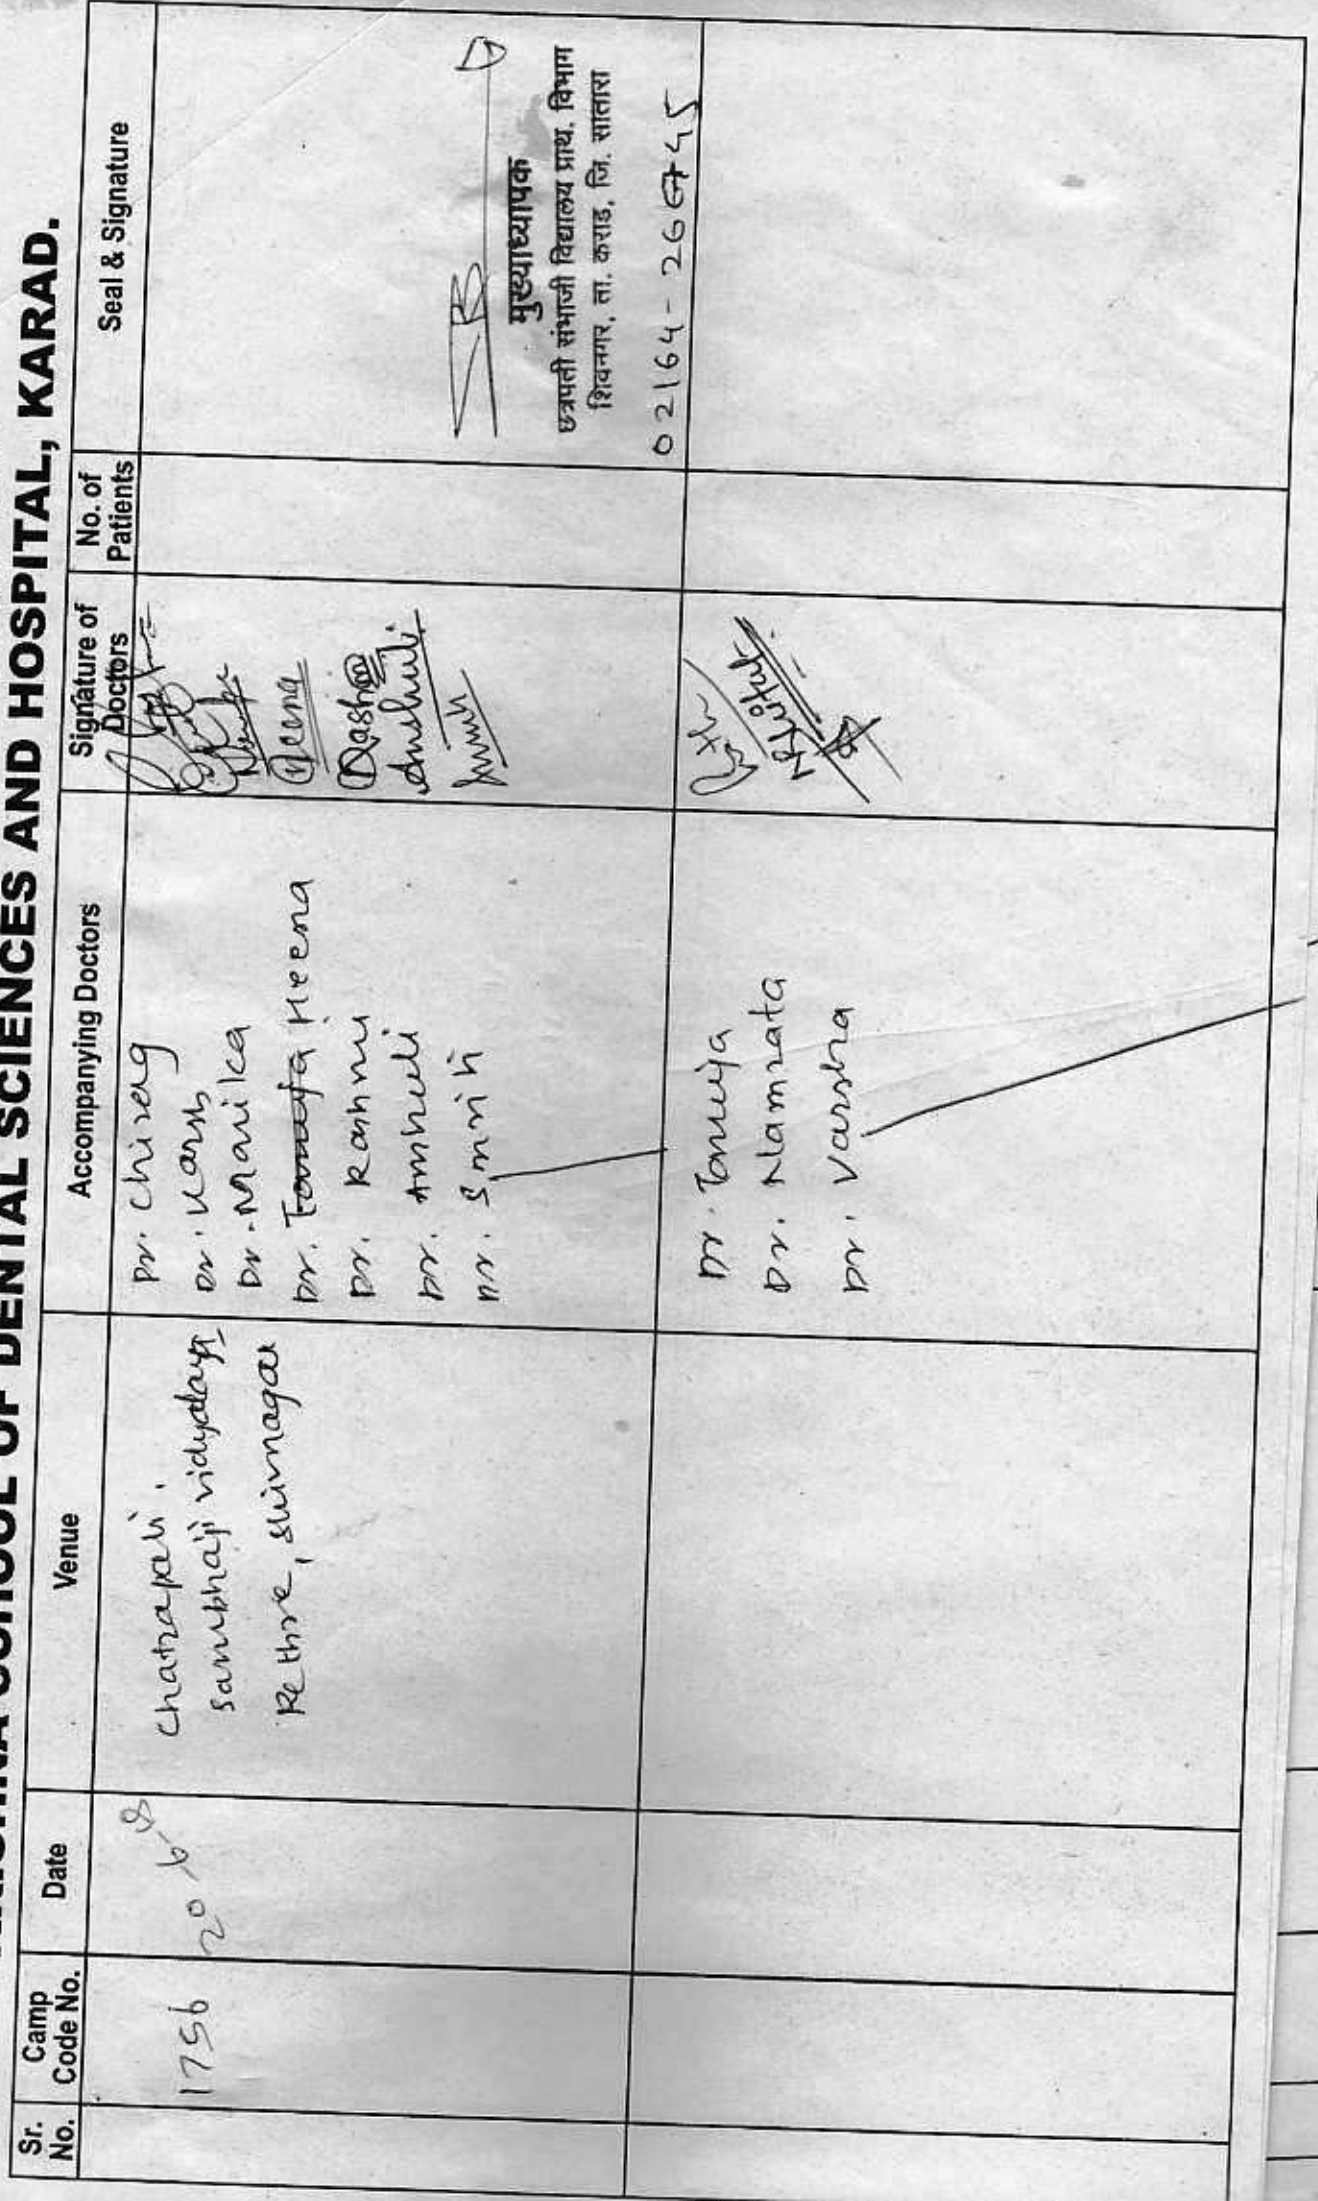 SCHOOL OF DENTAL SCIENCES AND HOSPITAL, KARAD.
Sr. No.
Camp Code No.
Date
Venue
Accompanying Doctors
Signature of Doctors
No. of Patients
Seal & Signature
1756
20
Chatrapati.
Sambhaji vidyalaya
Rethre, Shivnagar
Dr. Chirag
Dr. Harsh
Dr. Manika
Dr. Heena
Dr. Rashmi
Dr. Anshuli
Dr. Smriti
Heena
Rashmi
Anshuli
मुख्याध्यापक
छत्रपती संभाजी विद्यालय प्राथ. विभाग
शिवनगर, ता. कराड, जि. सातारा
02164-266745
Dr. Tanuja
Dr. Namrata
Dr. Varsha